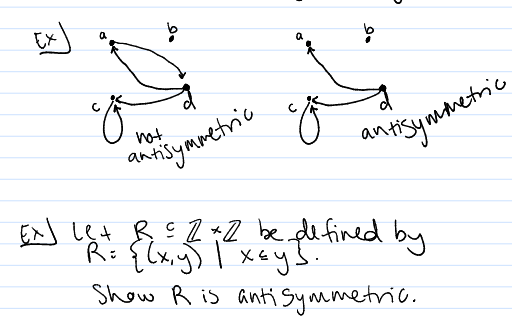 Ex]
a b
c d
not
antisymmetric
a b
c d
antisymmetric
Ex] Let R ⊆ ℤ×ℤ be defined by
R= {(x,y) | x≤y}.
Show R is antisymmetric.